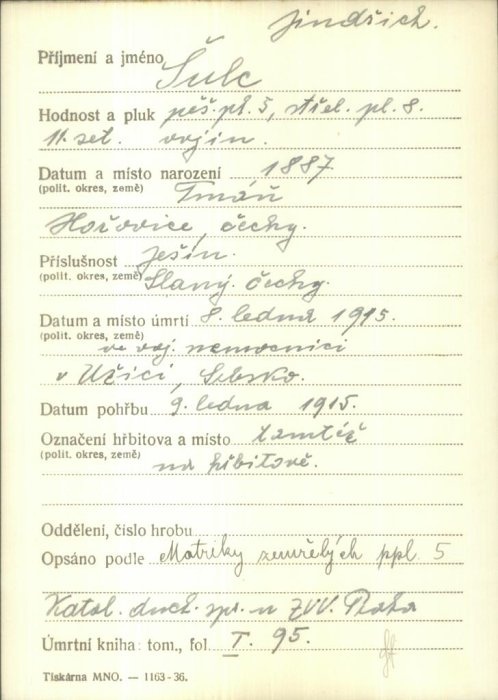 Jindřich.
Příjmení a jméno Šulc
Hodnost a pluk pěš. pl. 5, střel. pl. 8.
11. set. vojín.
Datum a místo narození 1887
(polit. okres, země) Tmáň
Hořovice, čechy.
Příslušnost Ješín.
(polit. okres, země) Slaný. čechy.
Datum a místo úmrtí 8. ledna 1915.
(polit. okres, země) ve voj. nemocnici
v Užici, Srbsko.
Datum pohřbu 9. ledna 1915.
Označení hřbitova a místo tamtéž
(polit. okres, země) na hřbitově.
Oddělení, číslo hrobu
Opsáno podle Matriky zemřelých ppl. 5
Katol. duch. spr. u ZVV. Praha
Úmrtní kniha: tom., fol. I. 95.
Tiskárna MNO. — 1163-36.